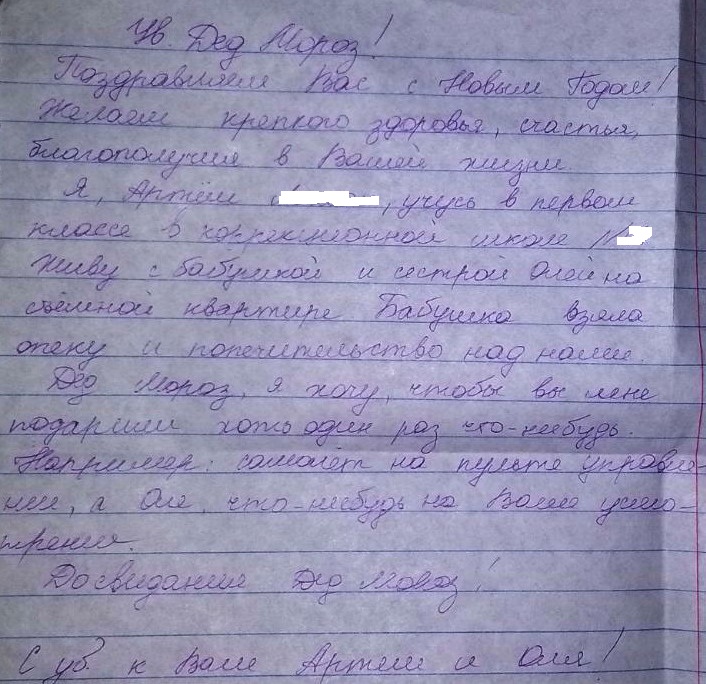 Ув. Дед Мороз!
Поздравляем Вас с Новым Годом!
Желаем крепкого здоровья, счастья,
благополучия в Вашей жизни.
Я, Артём , учусь в первом
классе в коррекционной школе №
Живу с бабушкой и сестрой Олей на
съёмной квартире Бабушка взяла
опеку и попечительство над нами.
Дед Мороз, я хочу, чтобы вы мне
подарили хоть один раз что-нибудь.
Например: самолёт на пульте управле-
нии, а Оле, что-нибудь на Ваше усмо-
трение.
Досвидания Дед Мороз!
С ув. к Вам Артём и Оля!